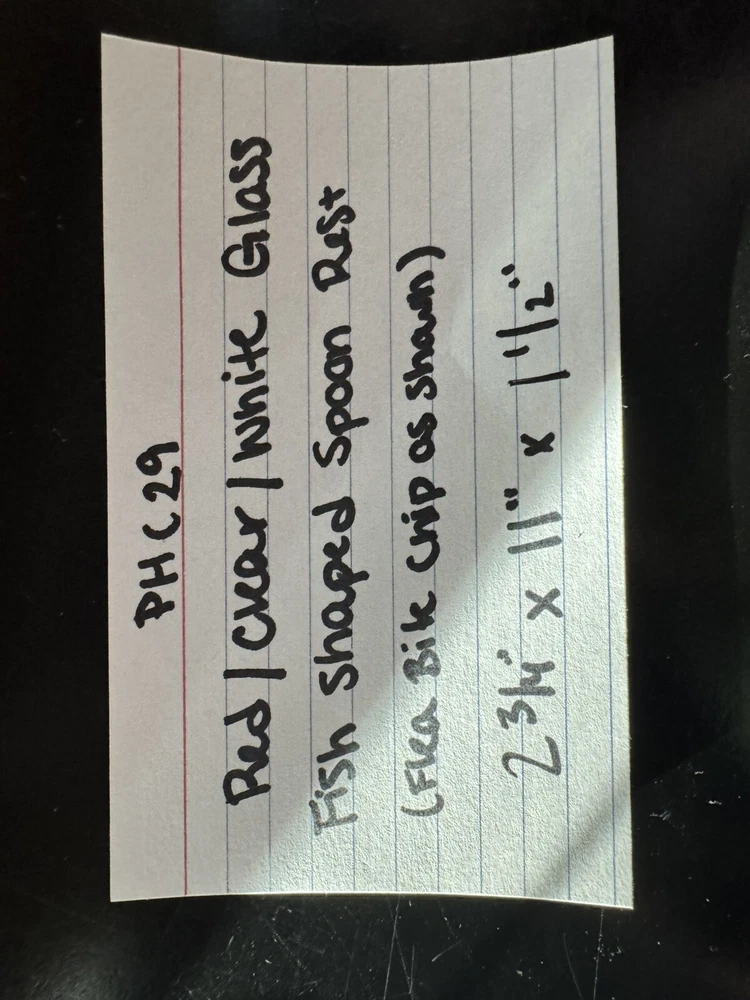 PHC29
Red/Clear/White Glass
Fish Shaped Spoon Rest
(Flea Bite Chip as shown)
2 3/4" x 11" x 1 1/2"